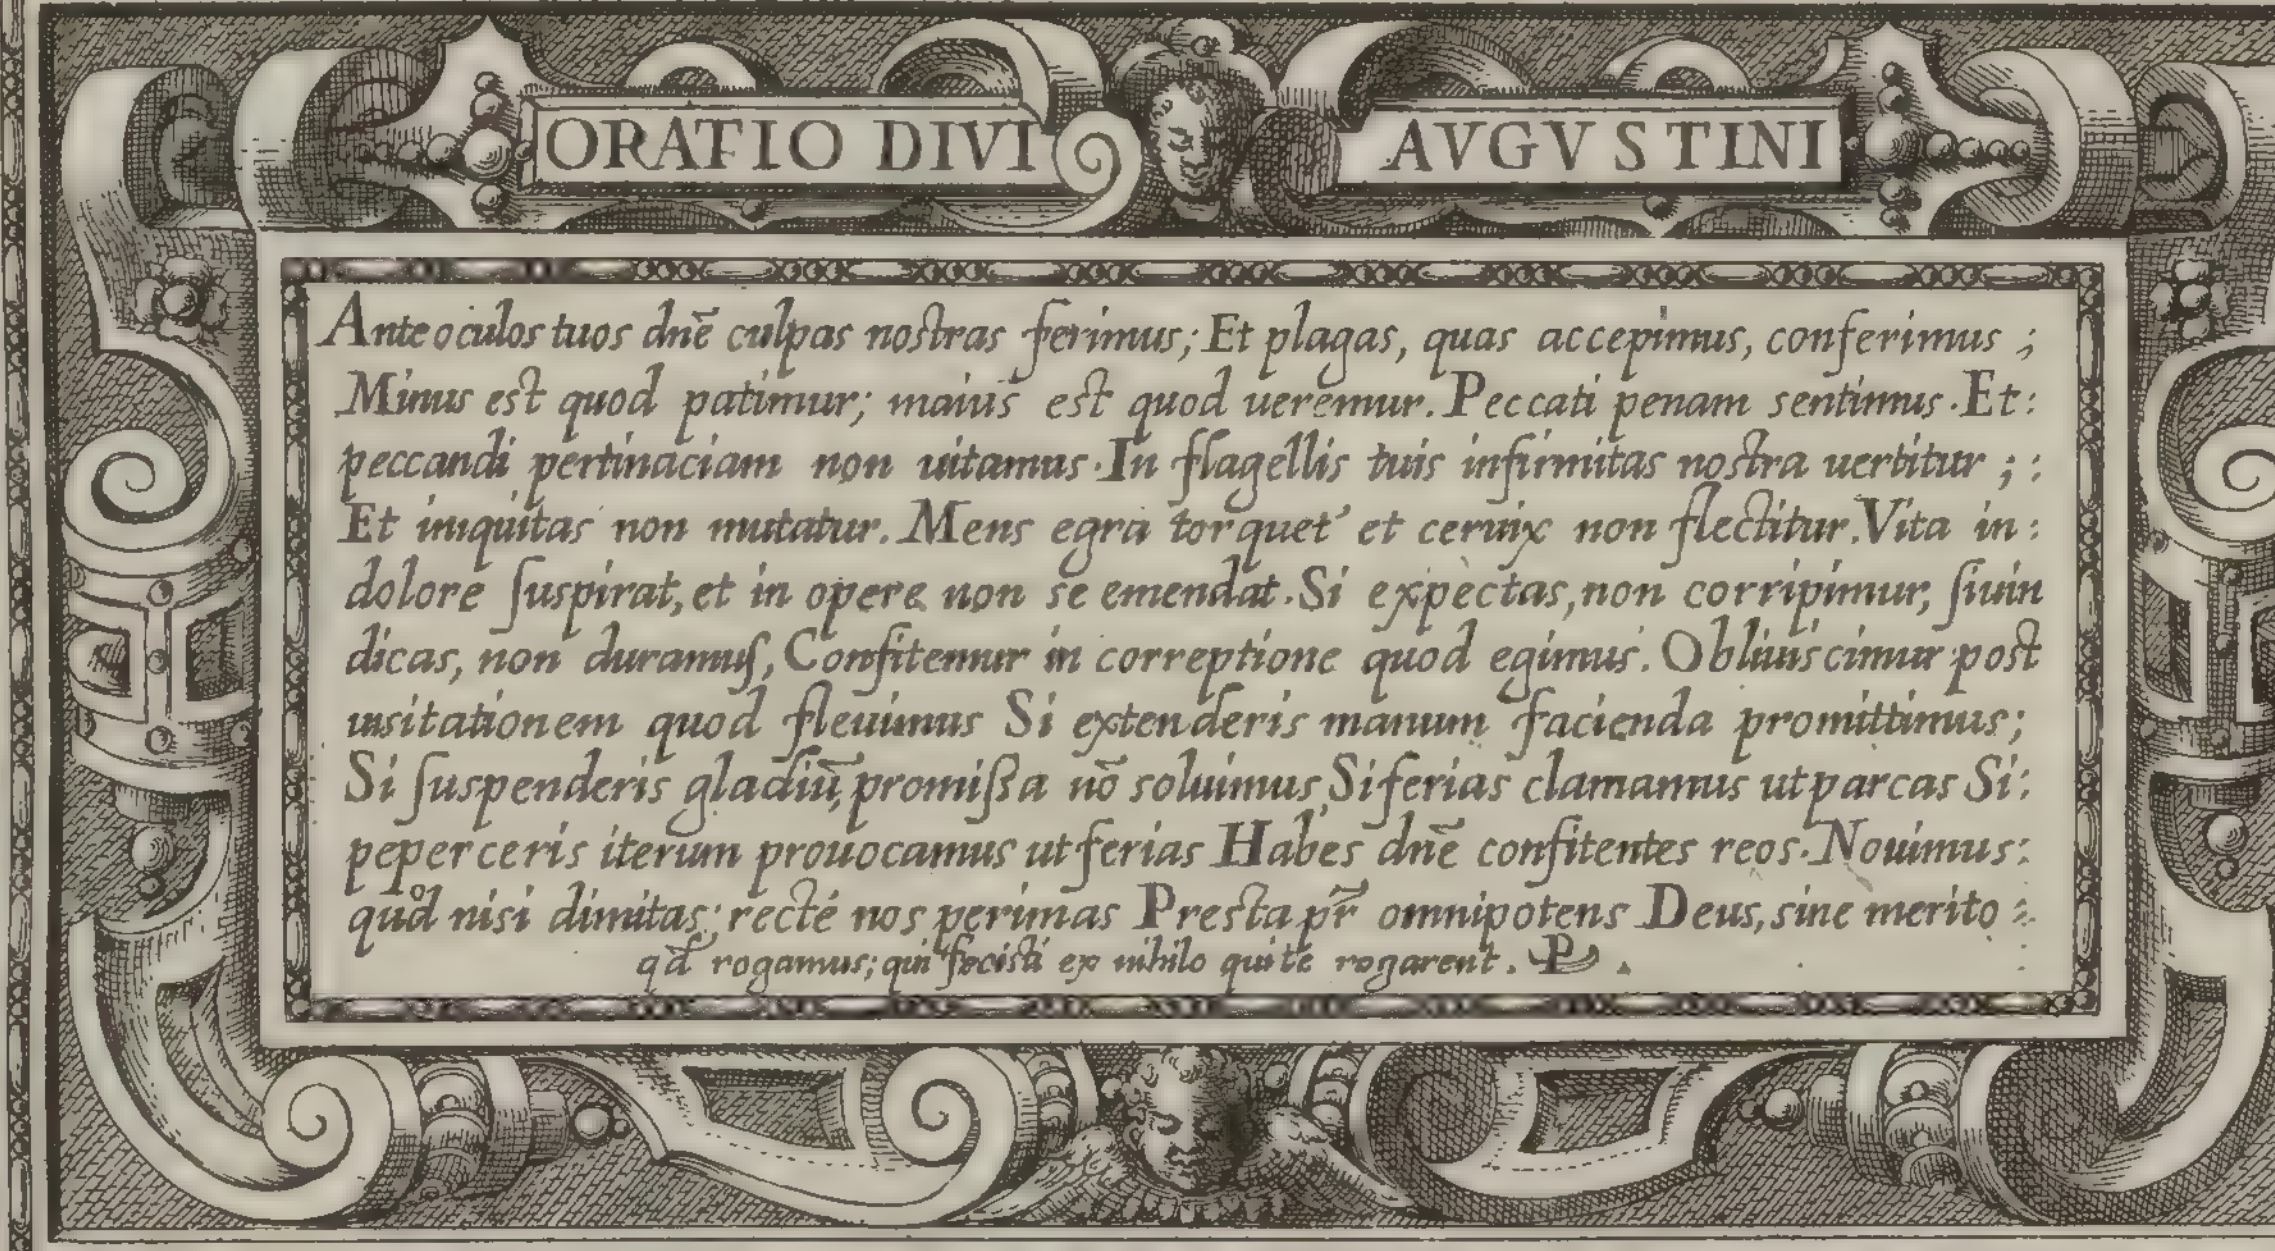 ORATIO DIVI AVGVSTINI
Ante oculos tuos dnē culpas nostras ferimus; Et plagas, quas accepimus, conferimus ;
Minus est quod patimur; maius est quod ueremur. Peccati penam sentimus. Et:
peccandi pertinaciam non uitamus. In flagellis tuis infirmitas nostra uertitur ; :
Et iniquitas non mutatur. Mens egra torquet' et ceruix non flectitur. Vita in:
dolore ſuspirat, et in opere non se emendat. Si expectas, non corripimur, ſiuin
dicas, non duramuſ, Confitemur in correptione quod egimus. Obliuiscimur post
uisitationem quod fleuimus Si extenderis manum facienda promittimus;
Si ſuspenderis gladiū, promiſsa nō soluimus, Si ferias clamamus ut parcas Si:
peperceris iterum prouocamus ut ferias Habes dnē confitentes reos. Nouimus:
quod nisi dimitas; recté nos perimas Presta pr̄ omnipotens Deus, sine merito :
qd̄ rogamus; qui fecisti ex nihilo qui te rogarent. P.